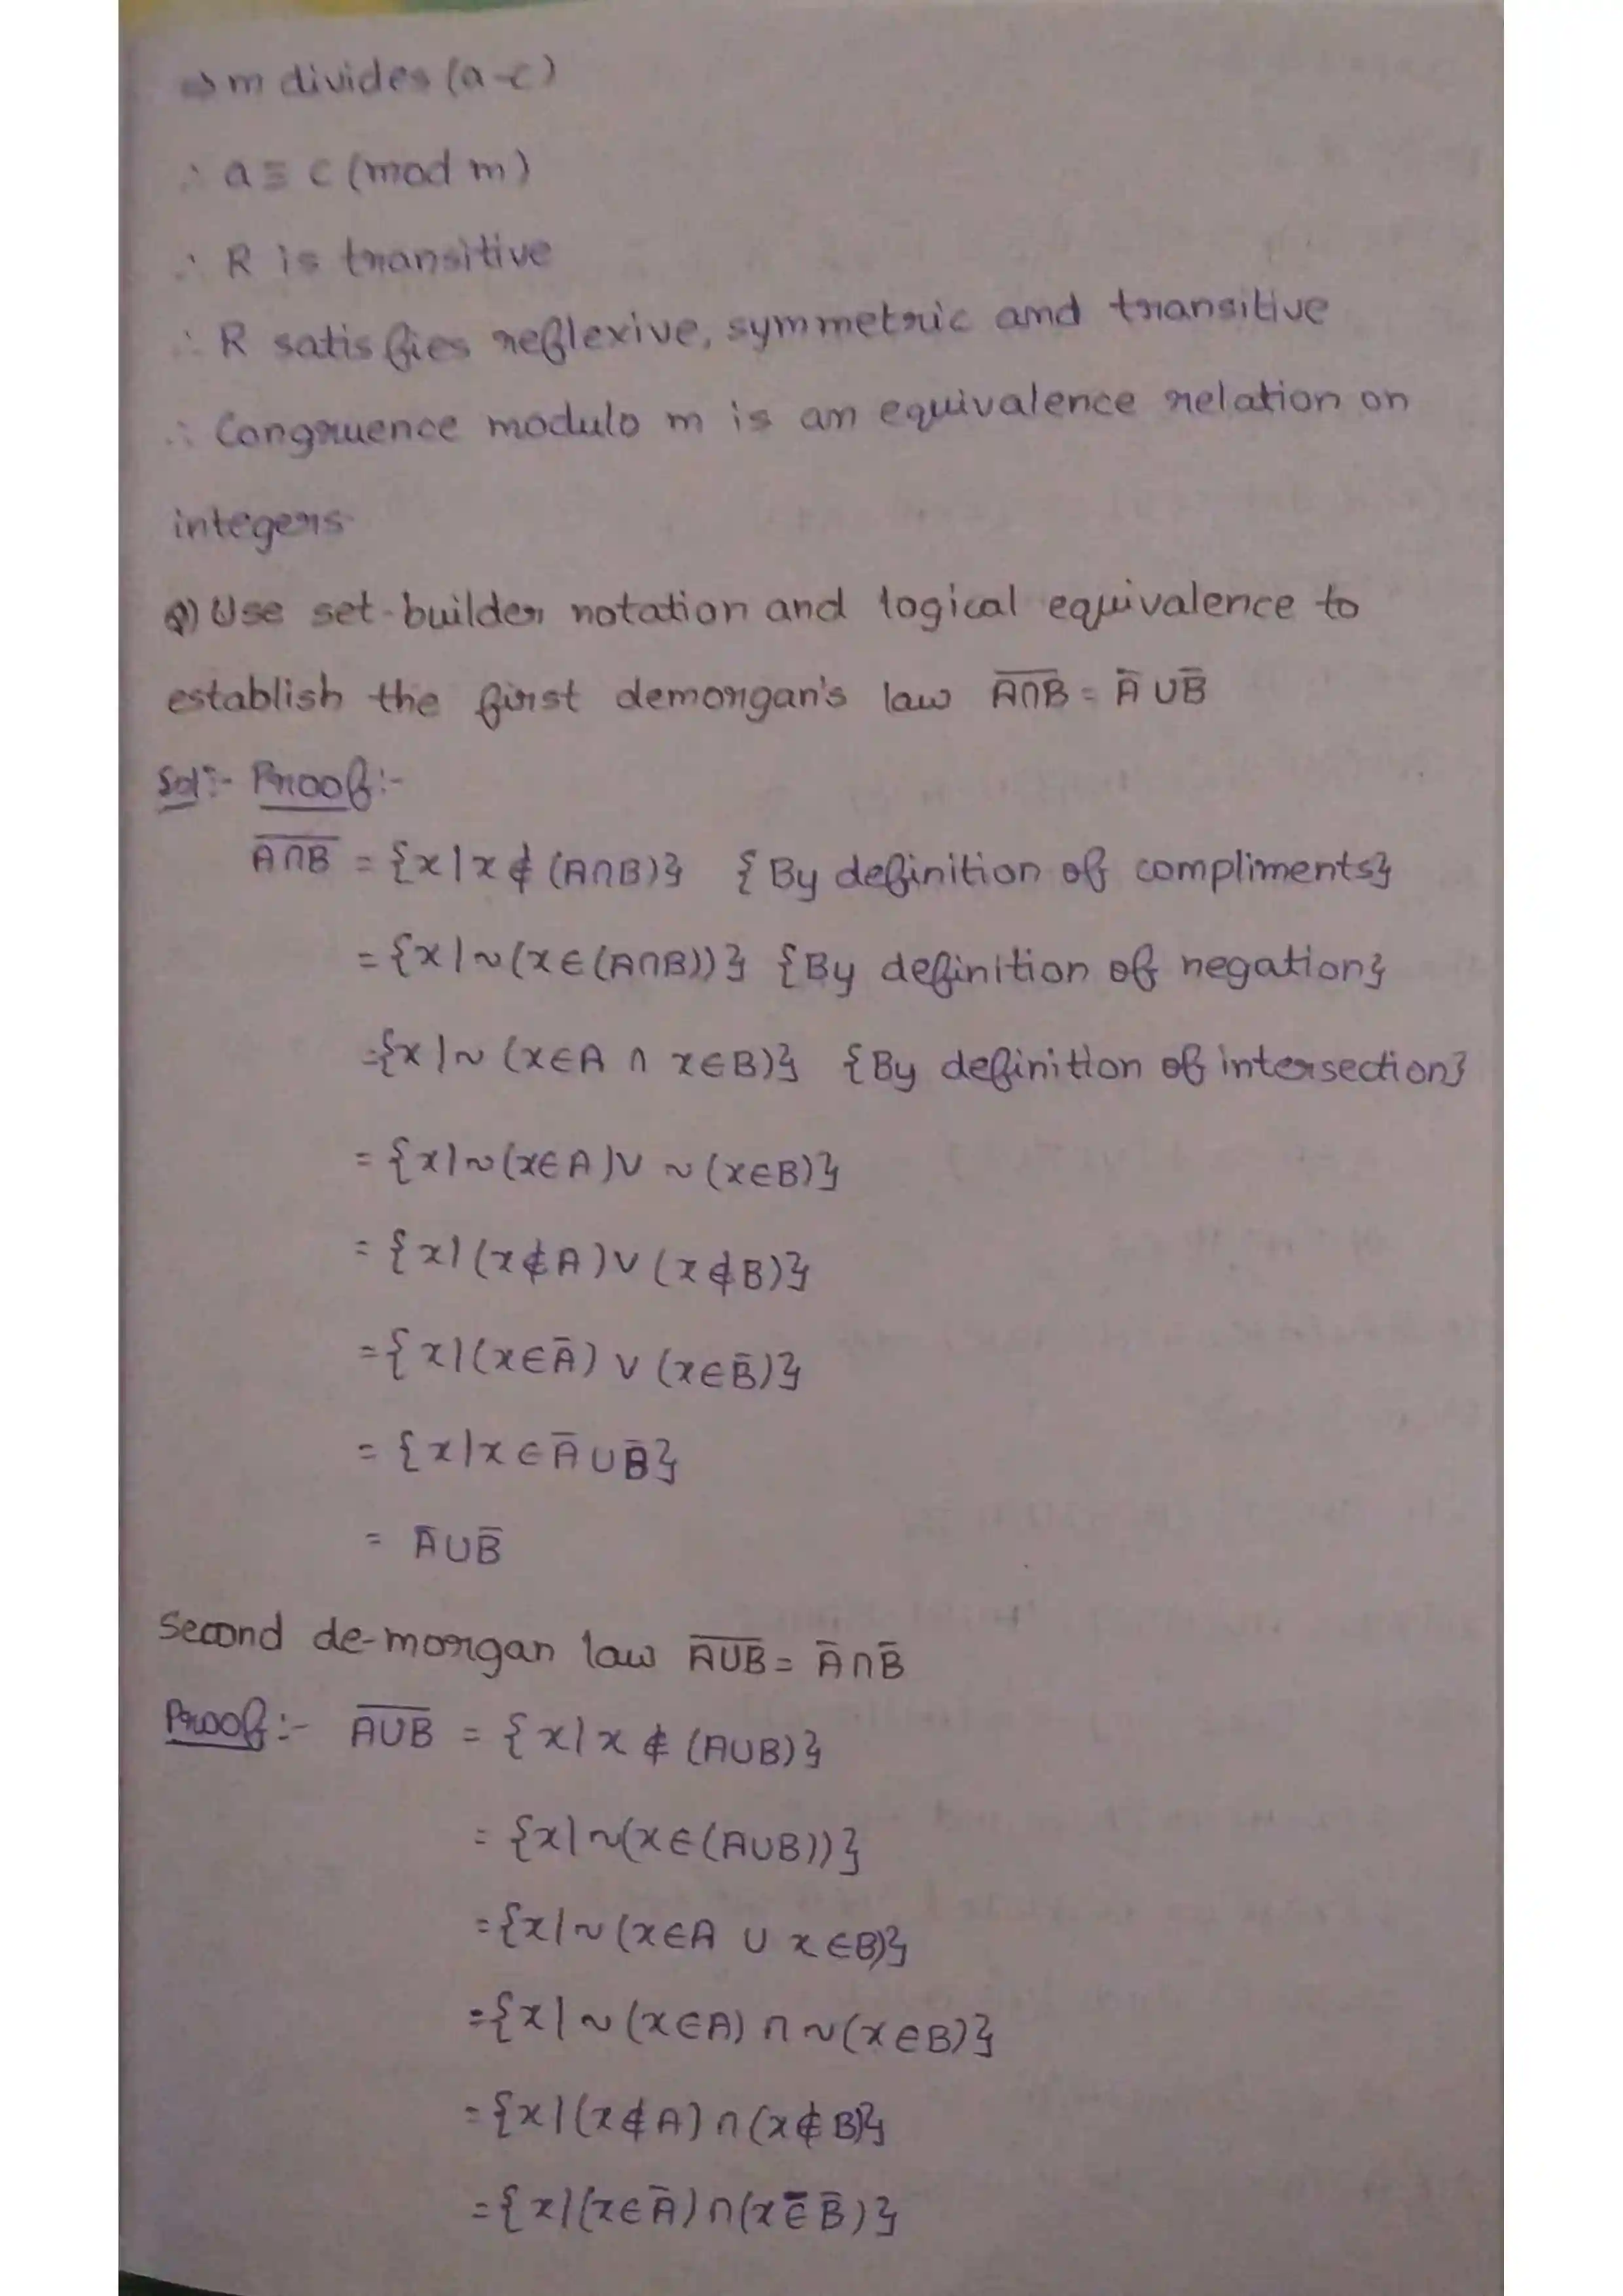 ⇒ m divides (a-c)
∴ a ≡ c (mod m)
∴ R is transitive
∴ R satisfies reflexive, symmetric and transitive
∴ Congruence modulo m is an equivalence relation on
integers
Q) Use set-builder notation and logical equivalence to
establish the first demorgan's law A̅∩̅B̅ = A̅ ∪ B̅
Sol:- Proof:-
A̅∩̅B̅ = {x | x ∉ (A∩B)} {By definition of compliments}
= {x | ~(x ∈ (A∩B))} {By definition of negation}
= {x | ~ (x∈A ∩ x∈B)} {By definition of intersection}
= {x | ~(x∈A) ∨ ~(x∈B)}
= {x | (x∉A) ∨ (x∉B)}
= {x | (x∈A̅) ∨ (x∈B̅)}
= {x | x ∈ A̅ ∪ B̅}
= A̅ ∪ B̅
Second de-morgan law A̅∪̅B̅ = A̅ ∩ B̅
Proof:- A̅∪̅B̅ = {x | x ∉ (A∪B)}
= {x | ~(x ∈ (A∪B))}
= {x | ~ (x∈A ∪ x∈B)}
= {x | ~ (x∈A) ∩ ~(x∈B)}
= {x | (x∉A) ∩ (x∉B)}
= {x | (x∈A̅) ∩ (x∈B̅)}